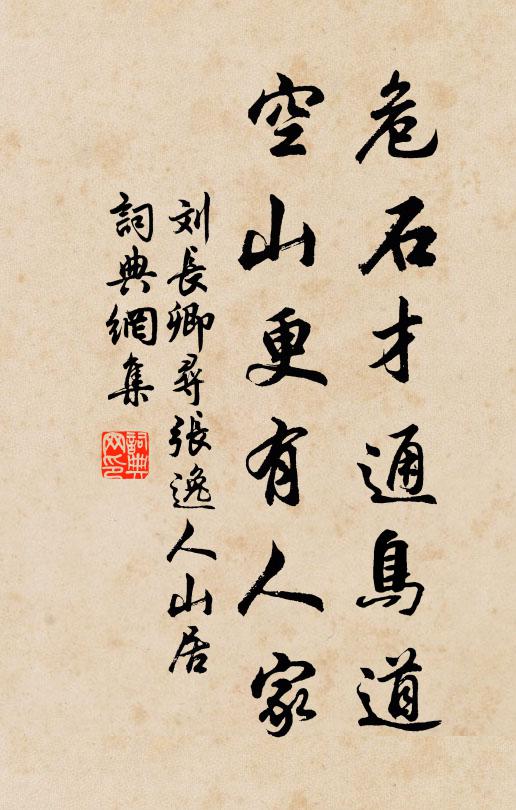 危石才通鳥道
空山更有人家
刘長卿尋張逸人山居
詞典網集
詞典网印